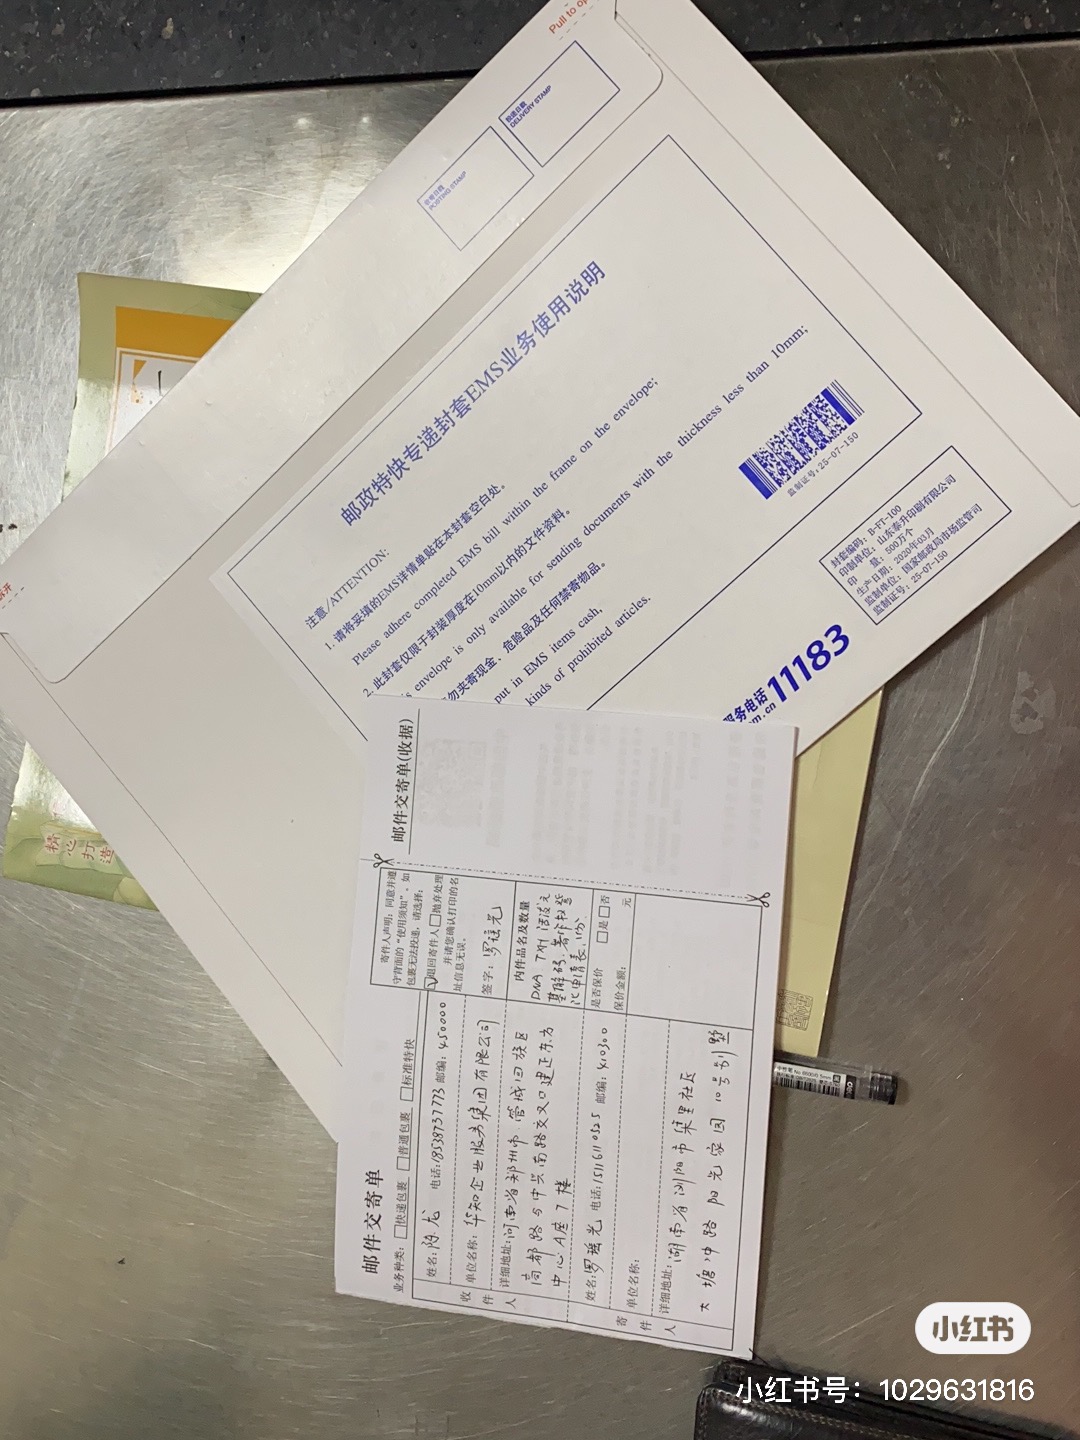 Pull to op
投递日戳
DELIVERY STAMP
收寄日戳
POSTING STAMP
邮政特快专递封套EMS业务使用说明
注意/ATTENTION:
1. 请将妥填的EMS详情单贴在本封套空白处。
Please adhere completed EMS bill within the frame on the envelope;
2. 此封套仅限于封装厚度在10mm以内的文件资料。
s envelope is only available for sending documents with the thickness less than 10mm;
勿夹寄现金、危险品及任何禁寄物品。
put in EMS items cash,
kinds of prohibited articles.
监制证号: 25-07-150
封套编码: B-FT-100
印制单位: 山东泰升印刷有限公司
印 量: 500万个
生产日期: 2020年03月
监制单位: 国家邮政局市场监管司
监制证号: 25-07-150
服务电话 11183
m.cn
拆开
精心打造
邮件交寄单(收据)
邮件交寄单
业务种类: □快递包裹 □普通包裹 □标准特快
收件人
姓名: 陈龙 电话: 18538737773 邮编: 450000
单位名称: 华知企业服务集团有限公司
详细地址: 河南省郑州市管城回族区
商都路与中兴南路交叉口建正东方
中心A座7楼
寄件人
姓名: 罗瑶光 电话: 15116110525 邮编: 410300
单位名称:
详细地址: 湖南省浏阳市集里社区
大塘冲路阳光家园10号别墅
寄件人声明: 同意并遵
守背面的“使用须知”。如
包裹无法投递, 请选择:
☑退回寄件人□抛弃处理
并请您确认打印的名
址信息无误。
签字: 罗瑶光
内件品名及数量
DNA
基解码,著作权登
记申请表,1份
是否保价 □是 □否
保价金额: 元
小红书
小红书号: 1029631816